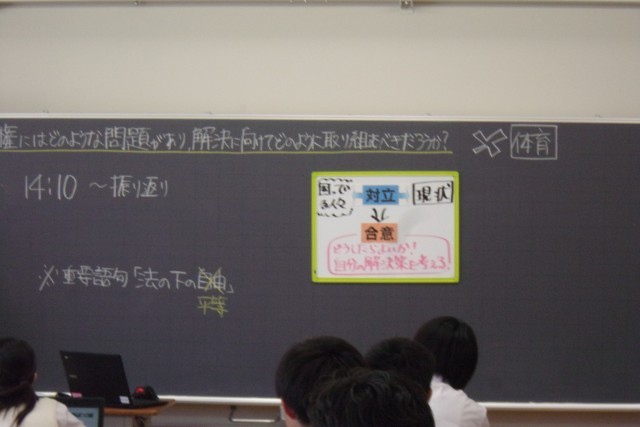 権にはどのような問題があり、解決に向けてどのように取り組むべきだろうか?
体育
14:10 ～振り返り
困って
対立
現状
合意
どうしたらよいか!
自分の解決策を考える。
※重要語句「法の下の自由」
平等